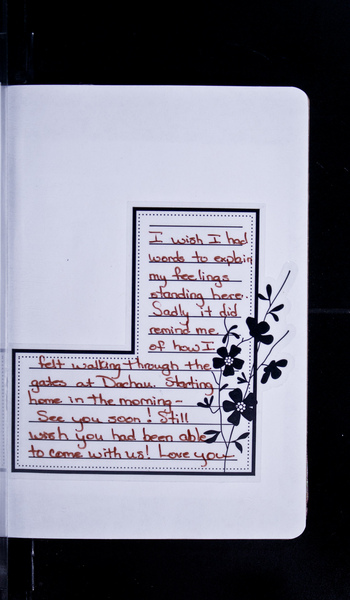 I wish I had
words to explain
my feelings
standing here.
Sadly it did
remind me
of how I
felt walking through the
gates at Dachau. Starting
home in the morning -
See you soon! Still
wish you had been able
to come with us! Love you